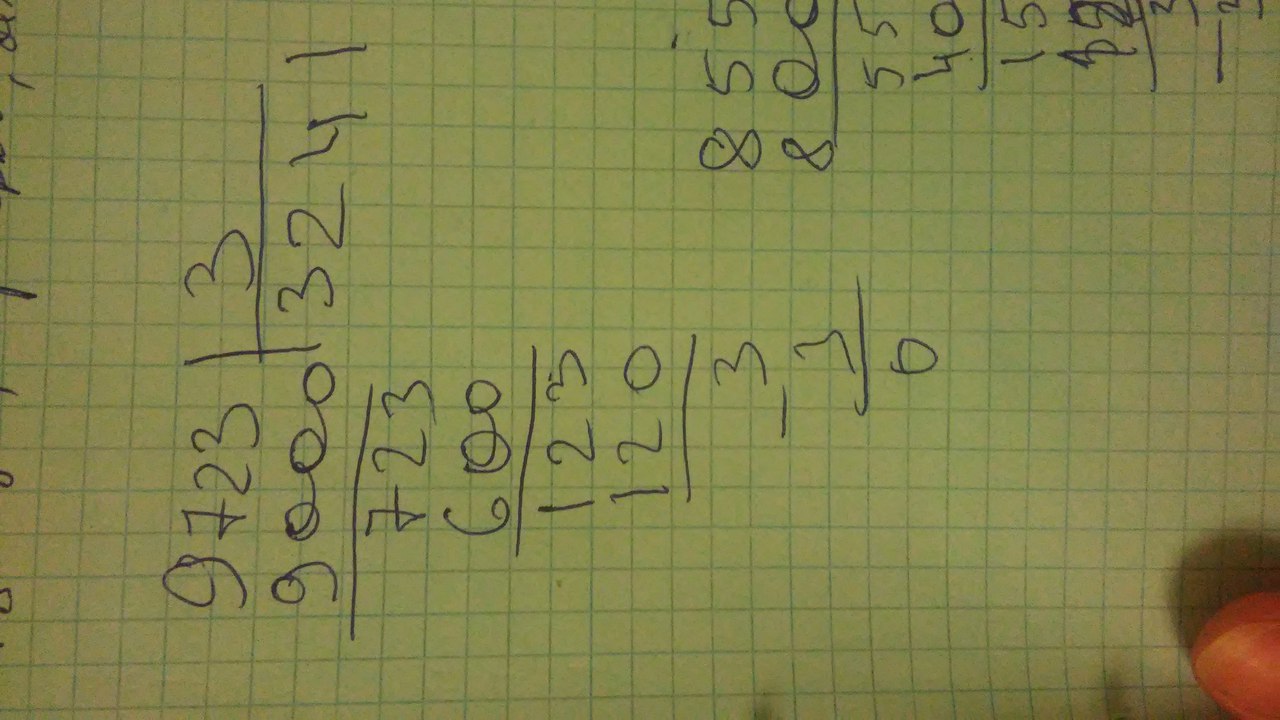 9723 | 3
9000 | 3241
723
600
123
120
3
- 3
0
855
800
55
40
15